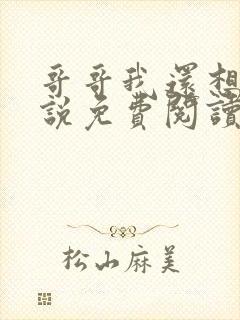 哥哥我還想
説免費閱讀
松山麻美